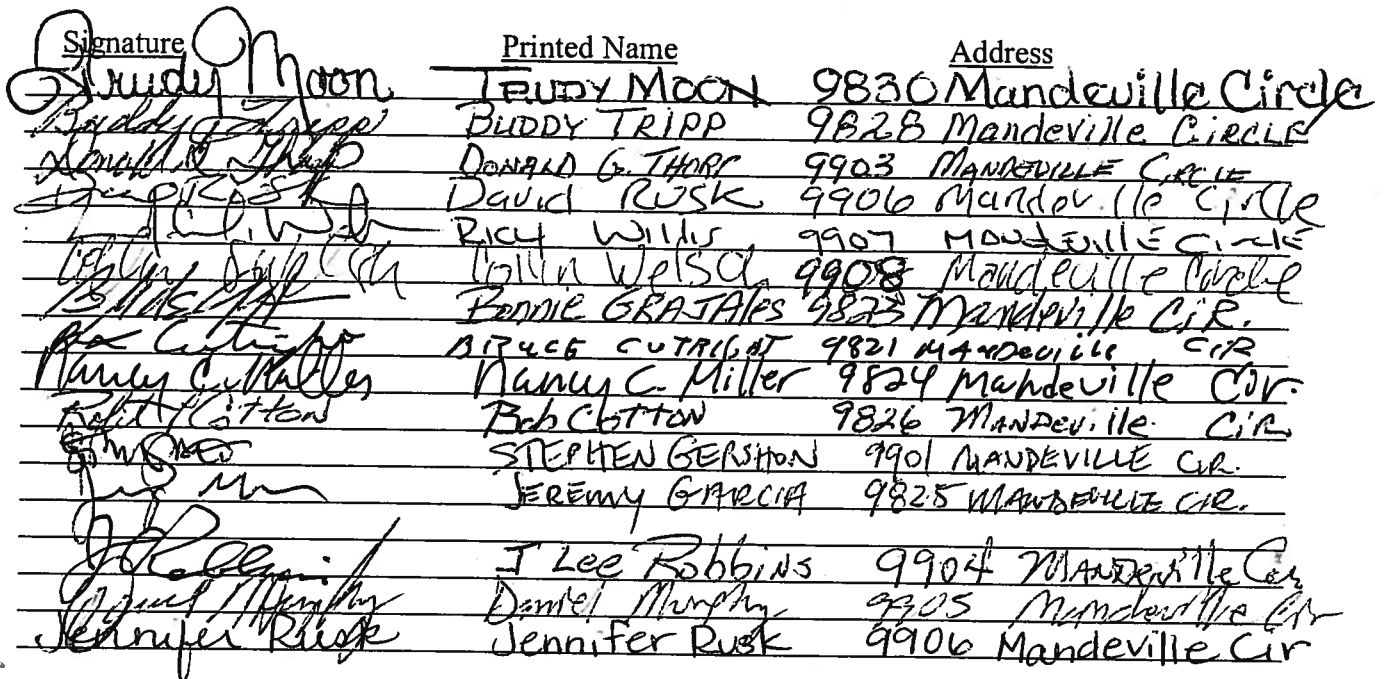 Signature Printed Name Address
Trudy Moon TRUDY MOON 9830 Mandeville Circle
Buddy Tripp BUDDY TRIPP 9828 Mandeville CIRCLE
Donald G Thorp DONALD G. THORP 9903 MANDEVILLE CIRCLE
David RUSK 9906 Mandeville Circle
RICK WILLIS 9907 MANDEVILLE CIRCLE
Welsch 9908 Mandeville Circle
Bonnie GRAJALES 9823 Mandeville CIR.
BRUCE CUTRIGHT 9821 MANDEVILLE CIR
Nancy C. Miller Nancy C. Miller 9824 Mandeville Cir.
Cotton Bob COTTON 9826 MANDEVILLE CIR
STEPHEN GERSHON 9901 MANDEVILLE CIR.
JEREMY GARCIA 9825 MANDEVILLE CIR.
J Lee Robbins 9904 MANDEVILLE Cir
Daniel Murphy Daniel Murphy 9905 Mandeville Cir
Jennifer Rusk Jennifer Rusk 9906 Mandeville Cir